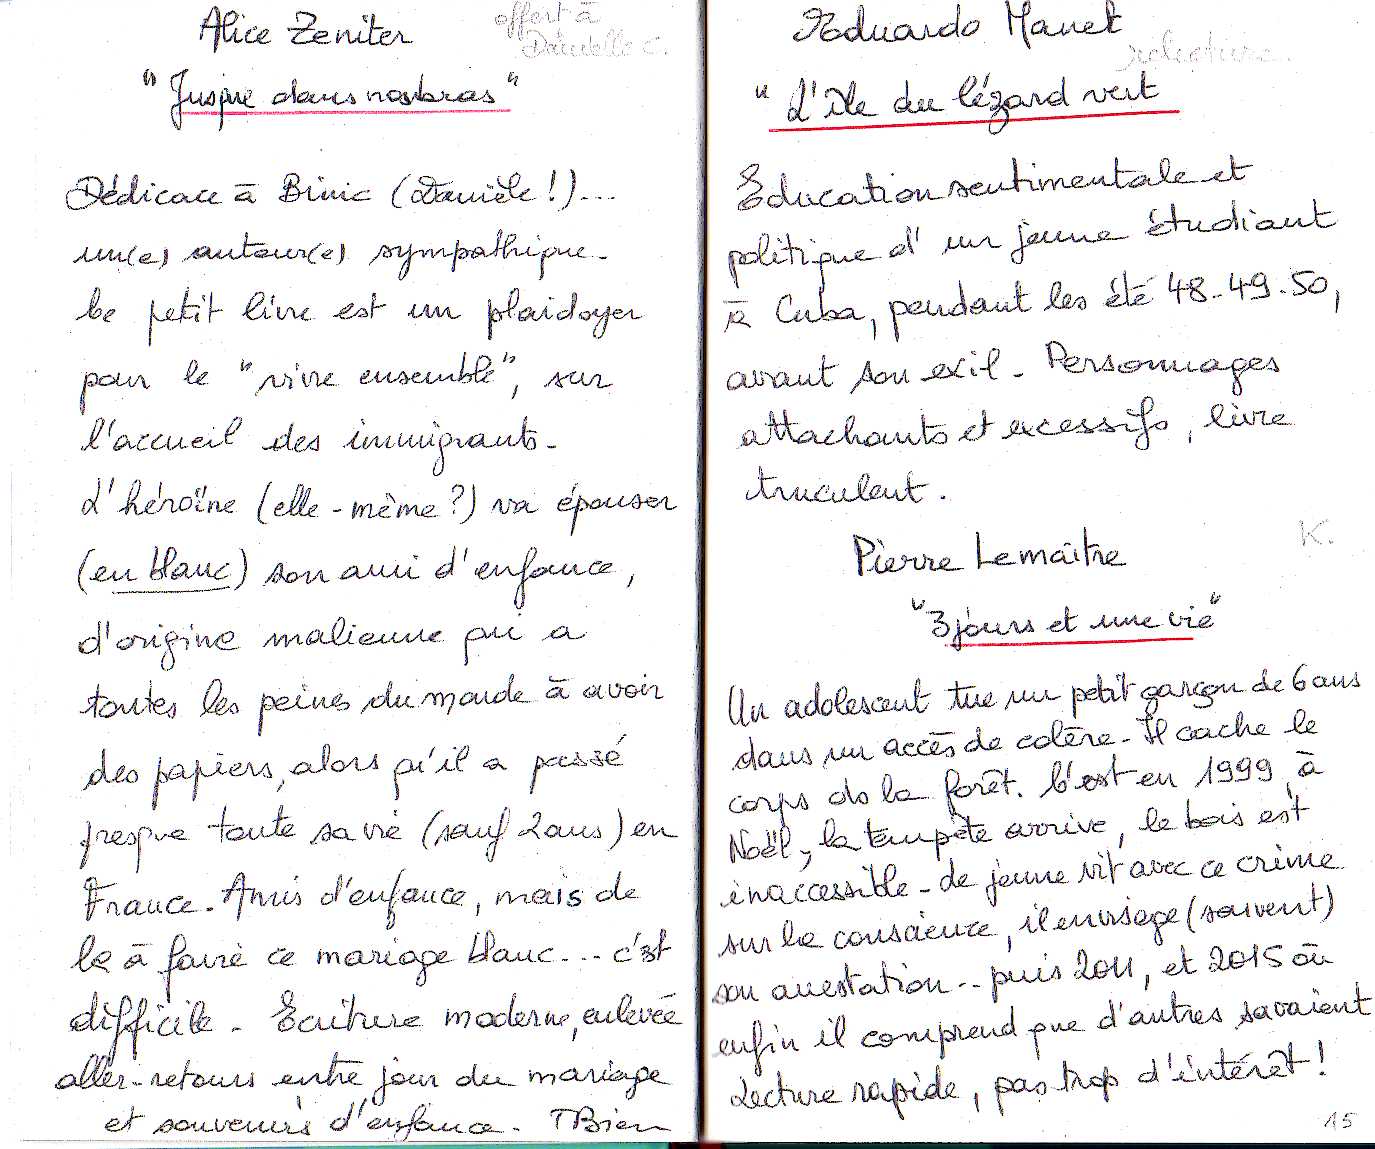 Alice Zeniter
offert à
Danielle C.
"Jusque dans nos bras"
Dédicace à Binic (Danièle !)...
un(e) auteur(e) sympathique.
Ce petit livre est un plaidoyer
pour le "vivre ensemble", sur
l'accueil des immigrants.
L'héroïne (elle-même ?) va épouser
(en blanc) son ami d'enfance,
d'origine malienne qui a
toutes les peines du monde à avoir
des papiers, alors qu'il a passé
presque toute sa vie (sauf 2 ans) en
France. Amis d'enfance, mais de
là à faire ce mariage blanc... c'est
difficile. Ecriture moderne, enlevée
aller-retours entre jour du mariage
et souvenirs d'enfance. TBien
Eduardo Manet
relecture.
"L'île du lézard vert
Education sentimentale et
politique d'un jeune étudiant
à Cuba, pendant les été 48-49-50,
avant son exil. Personnages
attachants et excessifs, livre
truculent.
K.
Pierre Lemaître
"3 jours et une vie"
Un adolescent tue un petit garçon de 6 ans
dans un accès de colère. Il cache le
corps ds la forêt. C'est en 1999, à
Noël, la tempête arrive, le bois est
inaccessible. Le jeune vit avec ce crime
sur la conscience, il envisage (souvent)
son arrestation.. puis 2011, et 2015 où
enfin il comprend que d'autres savaient
Lecture rapide, pas trop d'intérêt !
15